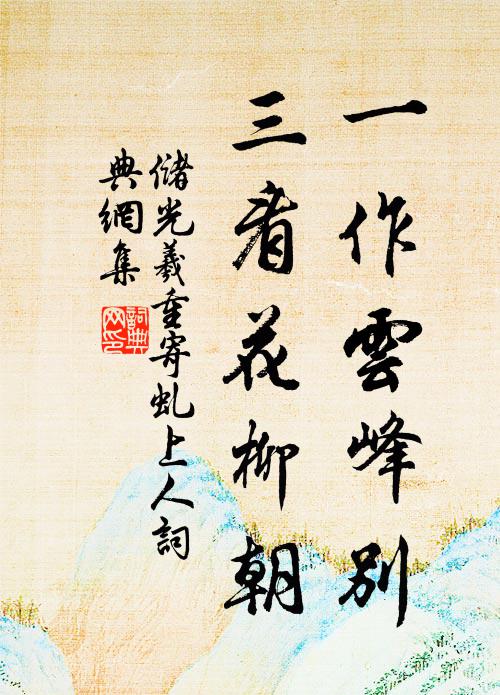 一作雲峰別
三看花柳朝
儲光羲重寄虬上人詞
典網集
詞典
网印